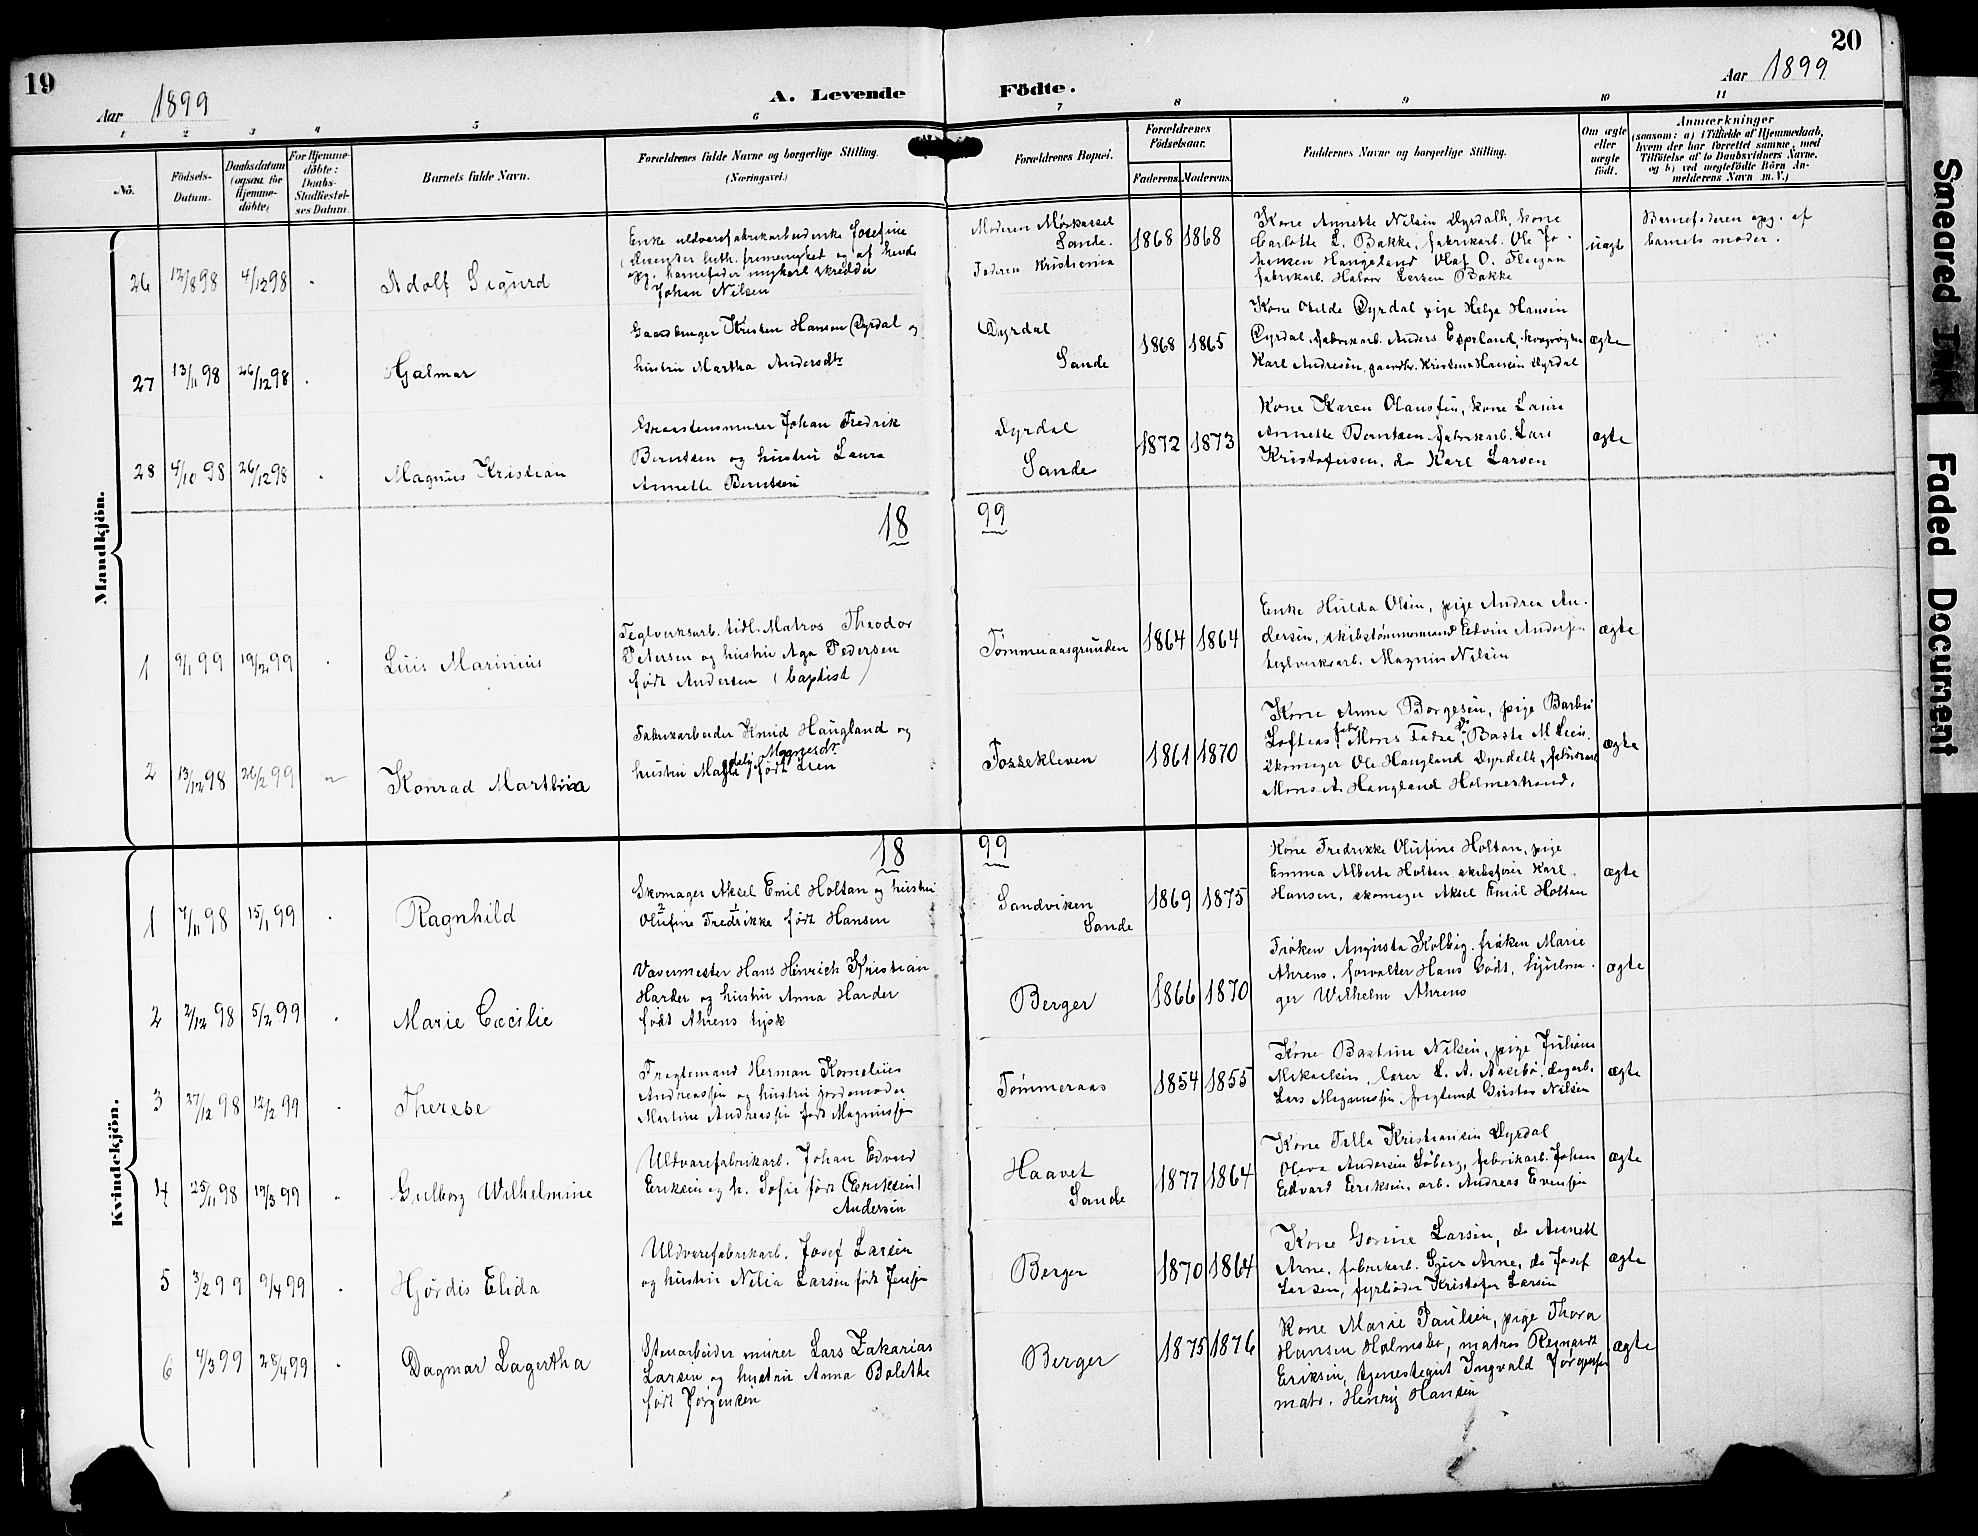 19
20
Aar 1899
A. Levende Födte.
Aar 1899
1 2 3 4 5 6 7 8 9 10 11
Nö.
Födsels-Datum.
Daabsdatum (ogsaa for Hjemme-döbte)
For Hjemme-döbte: Daabs-Stadfæstel-ses Datum.
Barnets fulde Navn.
Forældrenes fulde Navne og borgerlige Stilling. (Næringsvei.)
Forældrenes Bopæl.
Forældrenes Födselsaar.
Faderens. Moderens.
Faddernes Navne og borgerlige Stilling.
Om ægte eller uægte födt.
Anmærkninger
(saasom: a) i Tilfælde af Hjemmedaab, hvem der har forrettet samme, med Tilföielse af to Daabsvidners Navne. og b) ved uægtefödte Börn Anmelderens Navn m. V.)
Mandkjön.
26 12/8 98 4/12 98 Adolf Sigurd
Enke uldvarefabrikarbeiderske Josefine
og af hende
opg. barnefader ungkarl skredder
Johan Nilsen
Moderen Mörkassel
Sande.
Faderen Kristiania
1868 1868
Kone Annette Nilsen Dyrdalh, kone
Carlotte L. Bakke, fabrikarb. Ole Jo-
hansen Haugeland Olaf O.
fabrikarb. Halvor Larsen Bakke
uægte
Barnefaderen opg. af
barnets moder.
27 13/11 98 26/12 98 Hjalmar
Gaardbruger Kristen Hansen Dyrdal og
hustru Martha Andersdtr
Dyrdal
Sande
1868 1865
Kone Otilde Dyrdal pige Helga Hansen
Dyrdal, fabrikarb. Anders Espeland
Karl Andresen, gaardbr. Kristian Hansen Dyrdal
ægte
28 4/10 98 26/12 98 Magnus Kristian
Graastensmurer Johan Fredrik
Berntsen og hustru Laura
Annette Berntsen
Dyrdal
Sande
1872 1873
Kone Karen Olaussen, kone Laura
Annette Berntsen, fabrikarb. Lars
Kristofersen, do Karl Larsen
ægte
18 99
1 9/1 99 19/2 99 Luis Marinius
Teglverksarb. tidl. Matros Theodor
Petersen og hustru Aga Pedersen
född Andersen (baptist)
Tømmeraasgrunden
1864 1864
Enke Hulda Olsen, pige Andrea An-
dersen, skibstømmermand Edvin Andersen
teglverksarb. Magnus Nilsen
ægte
2 13/12 98 26/2 99 Konrad Marthin
Fabrikarbeider Knud Haugland og
hustru Magdeli Mognesdtr född Lien
Fossekleven
1861 1870
Kone Anna Børgesen, pige Barbu
Loftens, Mons Baste M Lien.
skomager Ole Haugland Dyrdalh, fabrikarb
Mons A. Haugland Holmestrand.
ægte
Kvindekjön.
18 99
1 7/11 98 15/1 99 Ragnhild
Skomager Aksel Emil Holtan og hustru
Olufine Fredrikke född Hansen
Sandviken
Sande
1869 1875
Kone Fredrikke Olufine Holtan, pige
Emma Alberta Holtan skibsfører Karl
Hansen, skomager Aksel Emil Holtan
ægte
2 2/12 98 5/2 99 Marie Cæcilie
Vævermester Hans Hinrich Kristian
Harder og hustru Anna Harder
född Ahrens tysk
Berger
1866 1870
Frøken Augusta Kolbig, frøken Marie
Ahrens, forvalter Hans Gödt,
ger Wilhelm Ahrens
ægte
3 27/12 98 12/2 99 Therese
Fragtemand Herman Kornelius
Andreassen og hustru jordemoder
Martine Andreassen född Magnussen
Tømmeraas
1854 1855
Kone Bastine Nilsen, pige Juliane
Mikaelsen, lærer L. A. Aasebö, dagarb.
Lars Magnussen, fragtmd Gustav Nilsen
ægte
4 25/11 98 19/3 99 Gulborg Wilhelmine
Uldvarefabrikarb. Johan Edvard
Eriksen og h. Sofie född (Eriksen)
Andersen
Haavet
Sande
1877 1864
Kone Tilla Kristiansen Dyrdal
Olava Andersen Søberg, fabrikarb. Johan
Edvard Eriksen, arb. Andreas Evensen
ægte
5 3/2 99 9/4 99 Hjørdis Elida
Uldvarefabrikarb. Josef Larsen
og hustru Nelia Larsen född Jensen
Berger
1870 1864
Kone Gorine Larsen, do Annette
Arne, fabrikarb. Arne, do Josef
Larsen, fyrbøder Kristofer Larsen
ægte
6 4/3 99 28/4 99 Dagmar Lagertha
Stenarbeider murer Lars Zakarias
Larsen og hustru Anna Bolette
född Jørgensen
Berger
1875 1876
Kone Marie Paulsen, pige Thora
Hansen Holmsbo, matros Reinart
Eriksen, tjenestegut Ingvald Jørgensen
matr. Henrij Hansen
ægte
Smeared Ink
Faded Document